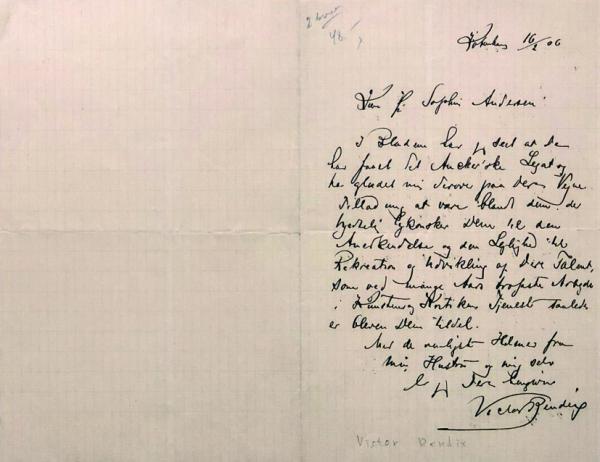 2 breve
48
16/2 06
Kære Fr. Sophie Andersen!
I Bladene har jeg set at De
har faaet det Ancker'ske Legat og
har glædet mig derover paa Deres Vegne
Tillad mig at være blandt dem, der
hjertelig lykønsker Dem til den
Anerkendelse og den Lejlighed til
Rekreation og Udvikling af Deres Talent,
som ved mange Aars Arbejde
i Kunstens og Tjeneste saaledes
er bleven Dem tildel.
Med de venligste Hilsener fra
min Hustru og mig selv
er jeg Deres hengivne
Victor Bendix
Victor Bendix